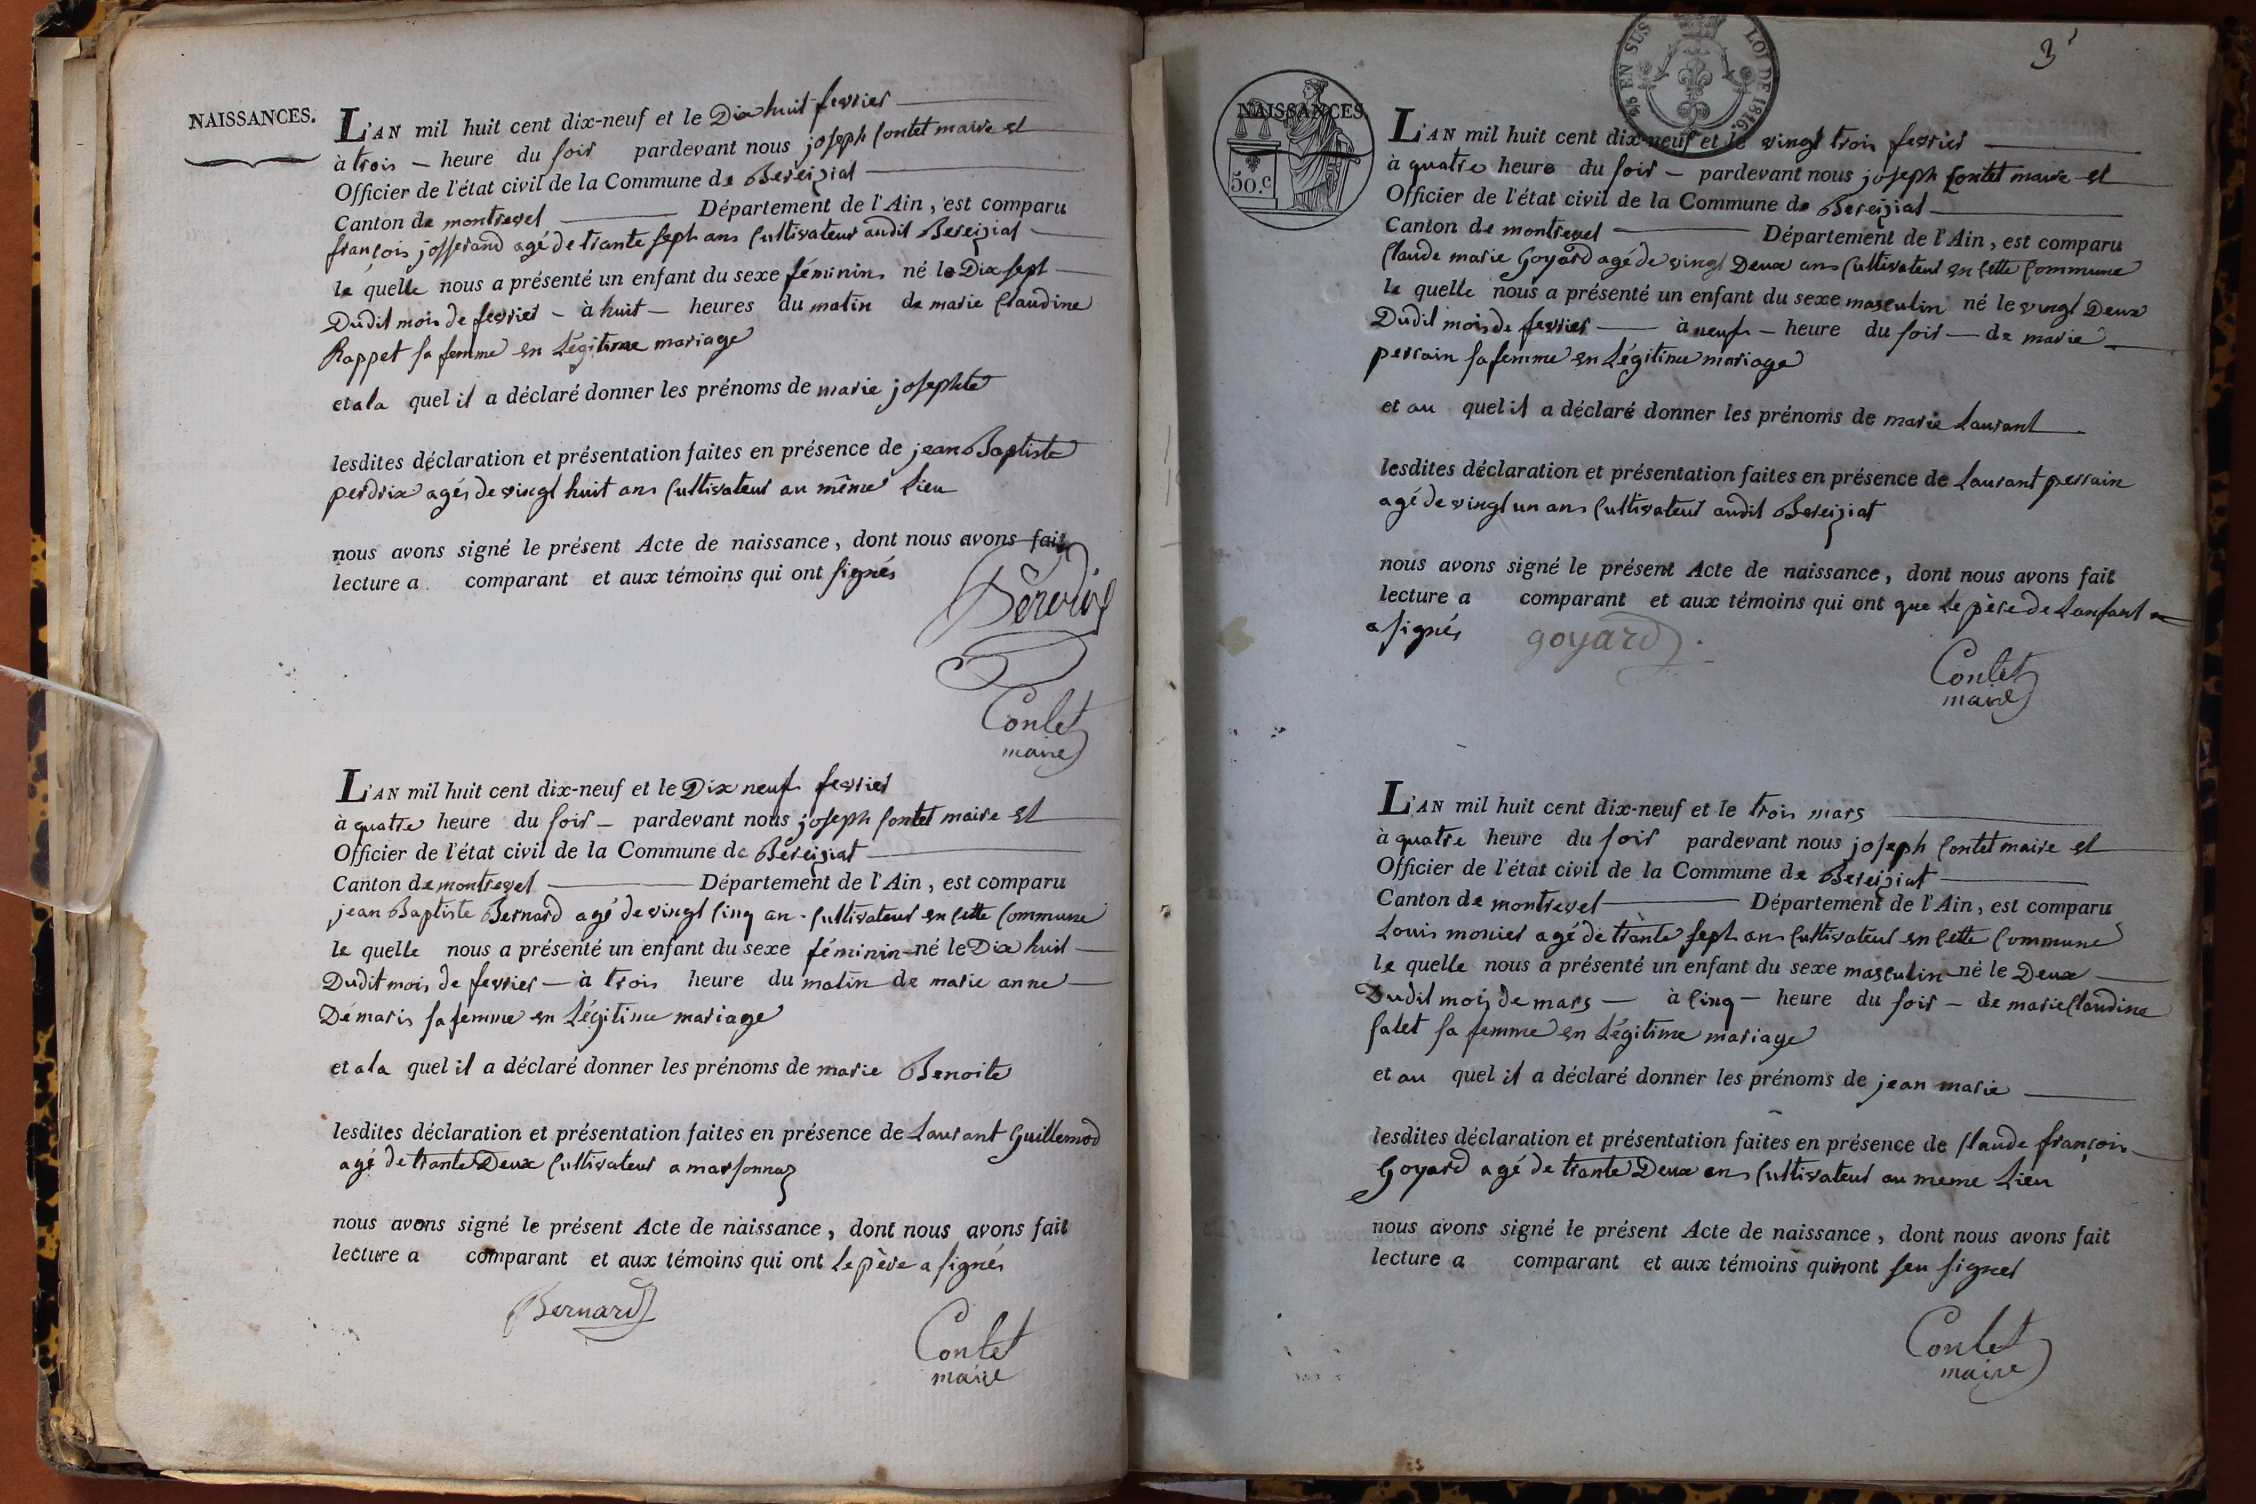 NAISSANCES.
L'AN mil huit cent dix-neuf et le Dix huit fevrier
à trois heure du soir pardevant nous joseph Contet maire et
Officier de l'état civil de la Commune de Bereiziat
Canton de montrevel Département de l'Ain, est comparu
françois josserand agé de trante sept ans Cultivateur audit Bereiziat
le quelle nous a présenté un enfant du sexe féminin né le Dix sept
Dudit mois de fevrier à huit heures du matin de marie Claudine
Rappet sa femme en Légitime mariage
et a la quel il a déclaré donner les prénoms de marie josephte
lesdites déclaration et présentation faites en présence de jean Baptiste
perdrix agés de vingt huit ans Cultivateur au même lieu
nous avons signé le présent Acte de naissance, dont nous avons fait
lecture a comparant et aux témoins qui ont signés
Contet
maire
L'AN mil huit cent dix-neuf et le Dix neuf fevrier
à quatre heure du soir pardevant nous joseph Contet maire et
Officier de l'état civil de la Commune de Bereiziat
Canton de montrevel Département de l'Ain, est comparu
jean Baptiste Bernard agé de vingt Cinq an Cultivateur en Cette Commune
le quelle nous a présenté un enfant du sexe féminin né le Dix huit
Dudit mois de fevrier à trois heure du matin de marie anne
Démaris sa femme en Légitime mariage
et a la quel il a déclaré donner les prénoms de marie Benoite
lesdites déclaration et présentation faites en présence de Laurant Guillemod
agé de trante Deux Cultivateur a marsonnaz
nous avons signé le présent Acte de naissance, dont nous avons fait
lecture a comparant et aux témoins qui ont le père a signés
Bernard
Contet
maire
3
EN SUS LOI DE 1816.
NAISSANCES
50.c
L'AN mil huit cent dix-neuf et le vingt trois fevrier
à quatre heure du soir pardevant nous joseph Contet maire et
Officier de l'état civil de la Commune de Bereiziat
Canton de montrevel Département de l'Ain, est comparu
Claude marie Goyard agé de vingt Deux ans Cultivateur en Cette Commune
le quelle nous a présenté un enfant du sexe masculin né le vingt Deux
Dudit mois de fevrier à neuf heure du soir de marie
perrain sa femme en Légitime mariage
et au quel il a déclaré donner les prénoms de marie Laurant
lesdites déclaration et présentation faites en présence de Laurant perrain
agé de vingt un ans Cultivateur audit Bereiziat
nous avons signé le présent Acte de naissance, dont nous avons fait
lecture a comparant et aux témoins qui ont que le père de Lanfant
a signés goyard
Contet
maire
L'AN mil huit cent dix-neuf et le trois mars
à quatre heure du soir pardevant nous joseph Contet maire et
Officier de l'état civil de la Commune de Bereiziat
Canton de montrevel Département de l'Ain, est comparu
Louis monier agé de trante sept ans Cultivateur en Cette Commune
le quelle nous a présenté un enfant du sexe masculin né le Deux
Dudit mois de mars à Cinq heure du soir de marie Claudine
falet sa femme en Légitime mariage
et au quel il a déclaré donner les prénoms de jean marie
lesdites déclaration et présentation faites en présence de Claude françois
Goyard agé de trante Deux ans Cultivateur au meme Lieu
nous avons signé le présent Acte de naissance, dont nous avons fait
lecture a comparant et aux témoins qui nont seu signer
Contet
maire